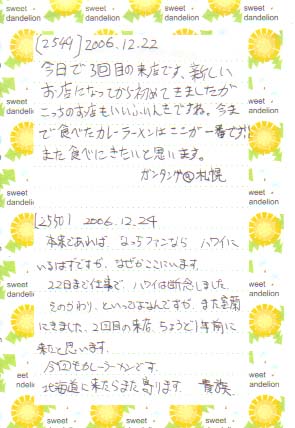 sweet dandelion
[2549] 2006.12.22
今日で3回目の来店です。新しい
お店になってから初めてきましたが
こっちのお店もいいふんいきですね。今ま
で食べたカレーラーメンはここが一番です!!
また食べにきたいと思います。
ガンタンク@札幌
[2550] 2006.12.24
本来であれば、なっちファンなら ハワイに
いるはずですが、なぜかここにいます。
22日まで仕事で、ハワイは断念しました。
そのかわり、といってはなんですが、また室蘭
にきました。2回目の来店、ちょうど1年前に
来たと思います。
今回もカレーラーメンです。
北海道に来たらまた寄ります。 貴族